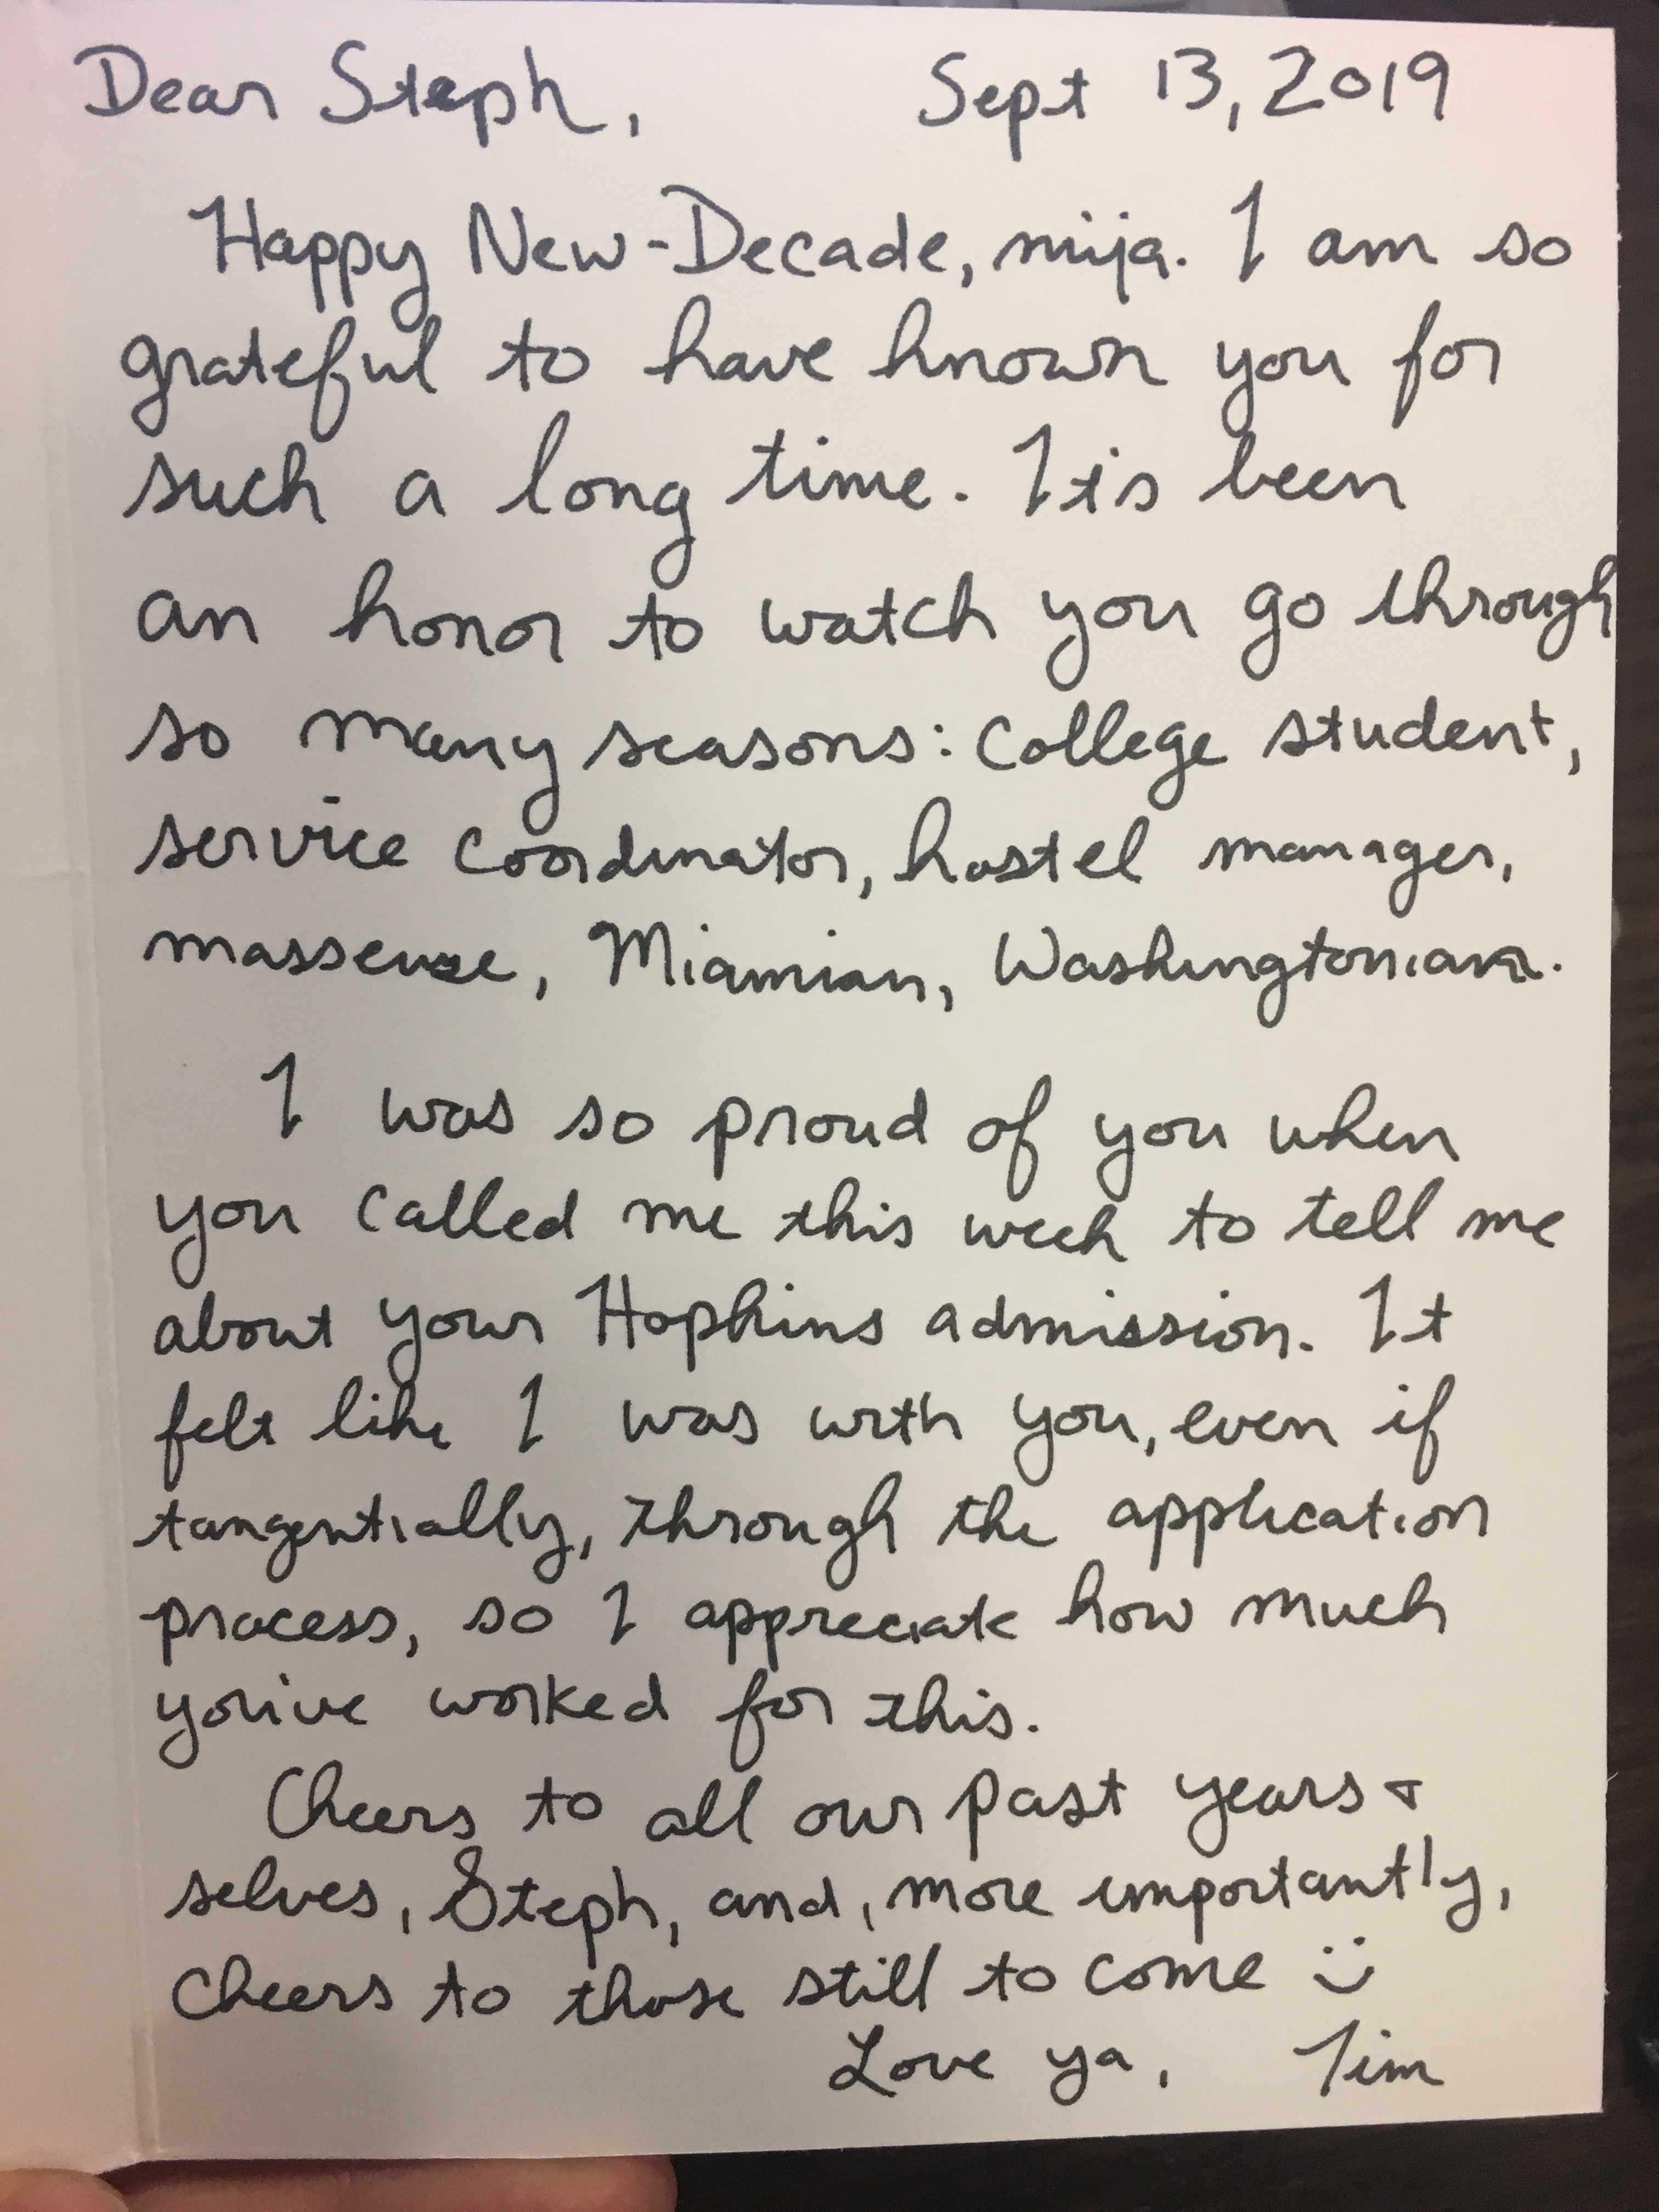 Dear Steph, Sept 13, 2019
Happy New-Decade, mija. I am so
grateful to have known you for
such a long time. It's been
an honor to watch you go through
so many seasons: college student,
service coordinator, hostel manager,
masseuse, Miamian, Washingtonian.
I was so proud of you when
you called me this week to tell me
about your Hopkins admission. It
felt like I was with you, even if
tangentially, through the application
process, so I appreciate how much
you've worked for this.
Cheers to all our past years +
selves, Steph, and, more importantly,
cheers to those still to come :)
Love ya, Tim